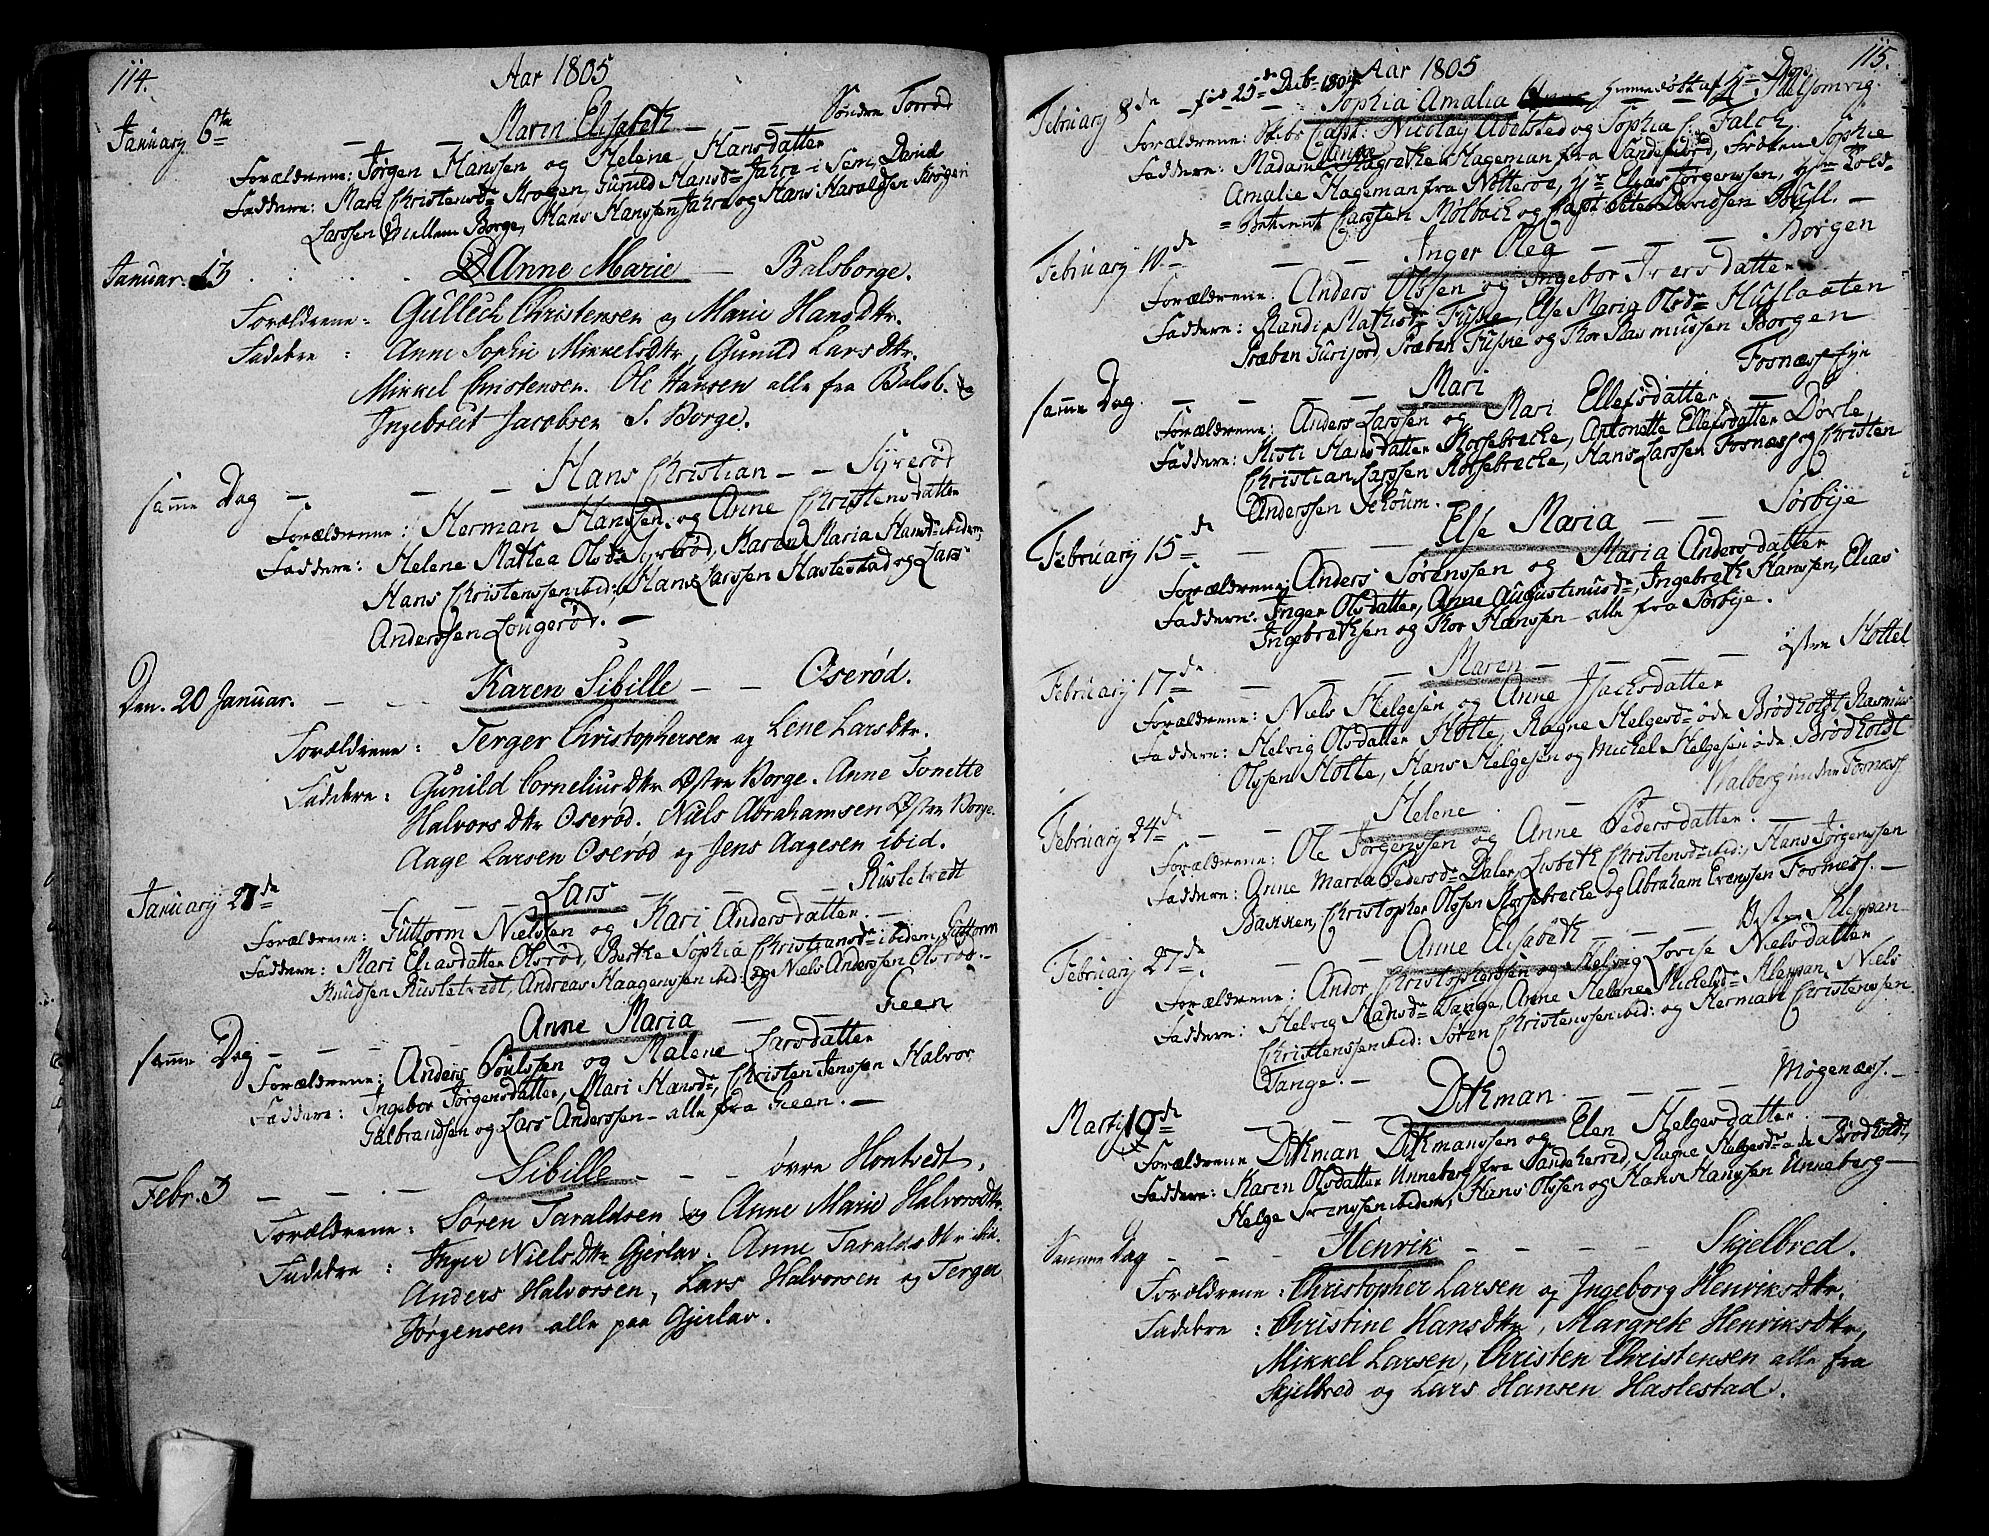 114.
Aar 1805
January 6te — — Maren Elisabeth — Søndre Torrød
Forældrene: Jørgen Hanssen og Helene Hansdatter
Faddere: Mari Christensdr Krogen, Gunild Hansdr Jahre i Sem, David
Larssen Mellem Borge, Hans Hanssen Jahre og Hans Haraldsen Krogen
Januar. 13 Anne Marie — Balsborge.
Forældrene: Gullech Christensen og Marie Hansdtr.
Faddere: Anne Sophie Mikkelsdtr, Gunild Larsdtr.
Mikkel Christensen. Ole Hansen alle fra Balsb. og
Ingebreit Jacobsen S. Borge.
samme Dag — — — Hans Christian — — Syrerød
Forældrene: Herman Hanssen og Anne Christensdatter
Faddere: Helene Mathea Olsdr Syrerød, Karen Maria Hansdr ibidem,
Hans Christenssen ibid:, Hans Larssen Haslestad og Lars
Anderssen Lougerød. —
Den. 20 Januar. — — Karen Sibille — — Oserød.
Forældrene: Terger Christophersen og Lene Larsdtr.
Faddere: Gunild Corneliusdtr Østre Borge. Anne Tonette
Halvorsdtr Oserød. Niels Abrahamsen Østre Borge.
Aage Larsen Oserød og Jens Aagesen ibid.
January 27de — — — Lars — — — Rustetvedt
Forældrene: Guttorm Nielssen og Kari Andersdatter. —
Faddere: Mari Eliasdatter Olsrød, Berthe Sophia Christiansdr ibidem, Guttorm
Knudsen Rustetvedt, Andreas Haagenssen ibid: og Niels Anderssen Olsrød. —
samme Dag — — — Anne Maria — — Geen
Forældrene: Anders Poulssen og Malene Larsdatter
Faddere: Ingebor Jørgensdatter, Mari Hansdr, Christen Jenssen Halvor
Gulbrandsen og Lars Anderssen — alle fra Geen. —
Febr. 3 — — — Sibille — — øvre Hontvedt.
Forældrene: Søren Taraldsen og Anne Marie Halvorsdtr.
Faddere: Inger Nielsdtr Gjerlav. Anne Taraldsdtr ibid.
Anders Halvorsen, Lars Halvorsen og Terger
Jørgensen alle paa Gjerlav.
115.
Aar 1805
February 8de fød 25de Decbr 1804 Sophia Amalia hjemmedøbt af Hr Dop. Melsomvig.
Forældrene: Skibs Capt: Nicolay Abelsted og Sophia C: Falch.
Faddere: Madame Anne Magrethe Hageman fra Sandefiord, Frøken Sophie
Amalie Hageman fra Nøtterøe, Hr Elias Jørgenssen, Hr Told-
Betient Carsten Mølbach og Capt: Peter Davidsen Bull. —
February 10de — — Inger Olea — — Borgen
Forældrene: Anders Olssen og Ingebor Iversdatter
Faddere: Randi Mathisdr Fuske, Else Maria Olsdr Huflaaten
Præben Gurijord, Præben Fuske og Thor Rasmussen Borgen
samme Dag. — — — Mari — — Fosnæss eje
Forældrene: Anders Larssen og Mari Ellefsdatter —
Faddere: Kisti Hansdatter Korsebrecke, Antonette Ellefsdatter Døvle,
Christian Larssen Korsebrecke, Hans Larssen Fosnæss og Christen
Anderssen Schoum.
February 15de — — — Else Maria — — Sørbye
Forældrene: Anders Sørenssen og Maria Andersdatter
Faddere: Inger Olsdatter, Anne Augustinusdr, Ingebreth Hanssen, Elias
Ingebrethsen og Thor Hanssen — alle fra Sørbye.
February 17de — — — Maren — — — østre Holtel
Forældrene: Niels Helgesen og Anne Isachsdatter
Faddere: Helvig Olsdatter Holte, Ragne Helgesdr øde Brødholdt, Rasmus
Olssen Holte, Hans Helgesen og Michel Helgesen øde Brødholdt
February 24de — — — Helene — — Valberg under Fosnæss
Forældrene: Ole Jørgenssen og Anne Pedersdatter. —
Faddere: Anne Maria Pedersdr Daler, Lisbeth Christensdr ibid:, Hans Jørgenssen
Bakken, Christopher Olssen Korsebrecke og Abraham Evenssen Fosnæss. —
February 27de — — Anne Elisabeth — — Vestre Kleppan
Forældrene: Andor Christopherssen og Helvig Lovise Nielsdatter
Faddere: Helvig Hansdr Tange, Anne Helene Michelsdr Kleppan, Niels
Christenssen ibid: Søren Christenssen ibid: og Herman Christenssen
Tange. —
Martj 10de — — — Ditkman — — Møgenæss. —
Forældrene Ditkman Ditkmanssen og Elen Helgesdatter
Faddere: Karen Olsdatter Unneberg fra Sandeherred, Ragne Helgesdr øde Brødholdt,
Helge ibidem, Hans Olssen og Hans Hanssen Unneberg —
Samme Dag — — — Henrik — — — — Skjelbred.
Forældrene: Christopher Larsen og Ingeborg Henriksdtr.
Faddere: Christine Hansdtr, Margrete Henriksdtr,
Mikkel Larsen, Christen Christensen alle fra
Skjelbred og Lars Hansen Haslestad.